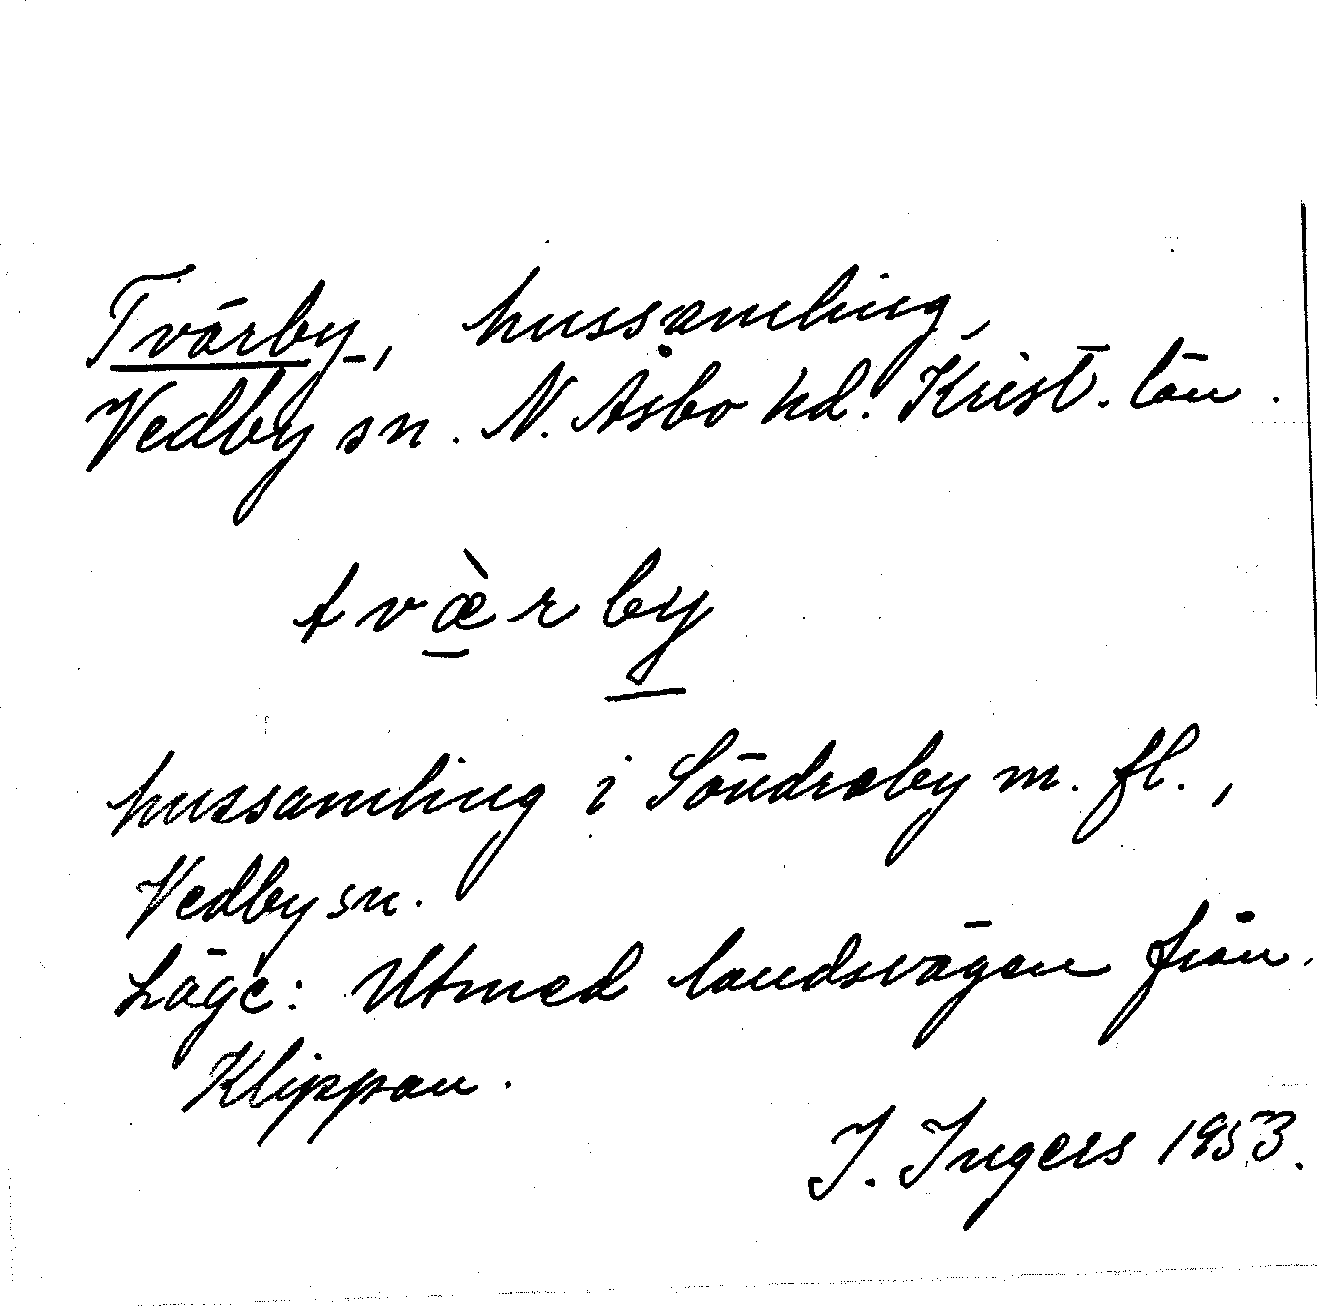 Tvärby, hussamling,
Vedby sn. N. Åsbo hd. Krist. län.
tvæ̀rby
hussamling i Söndraby m. fl.,
Vedby sn.
Läge: Utmed landsvägen från
Klippan.
I. Ingers 1953.